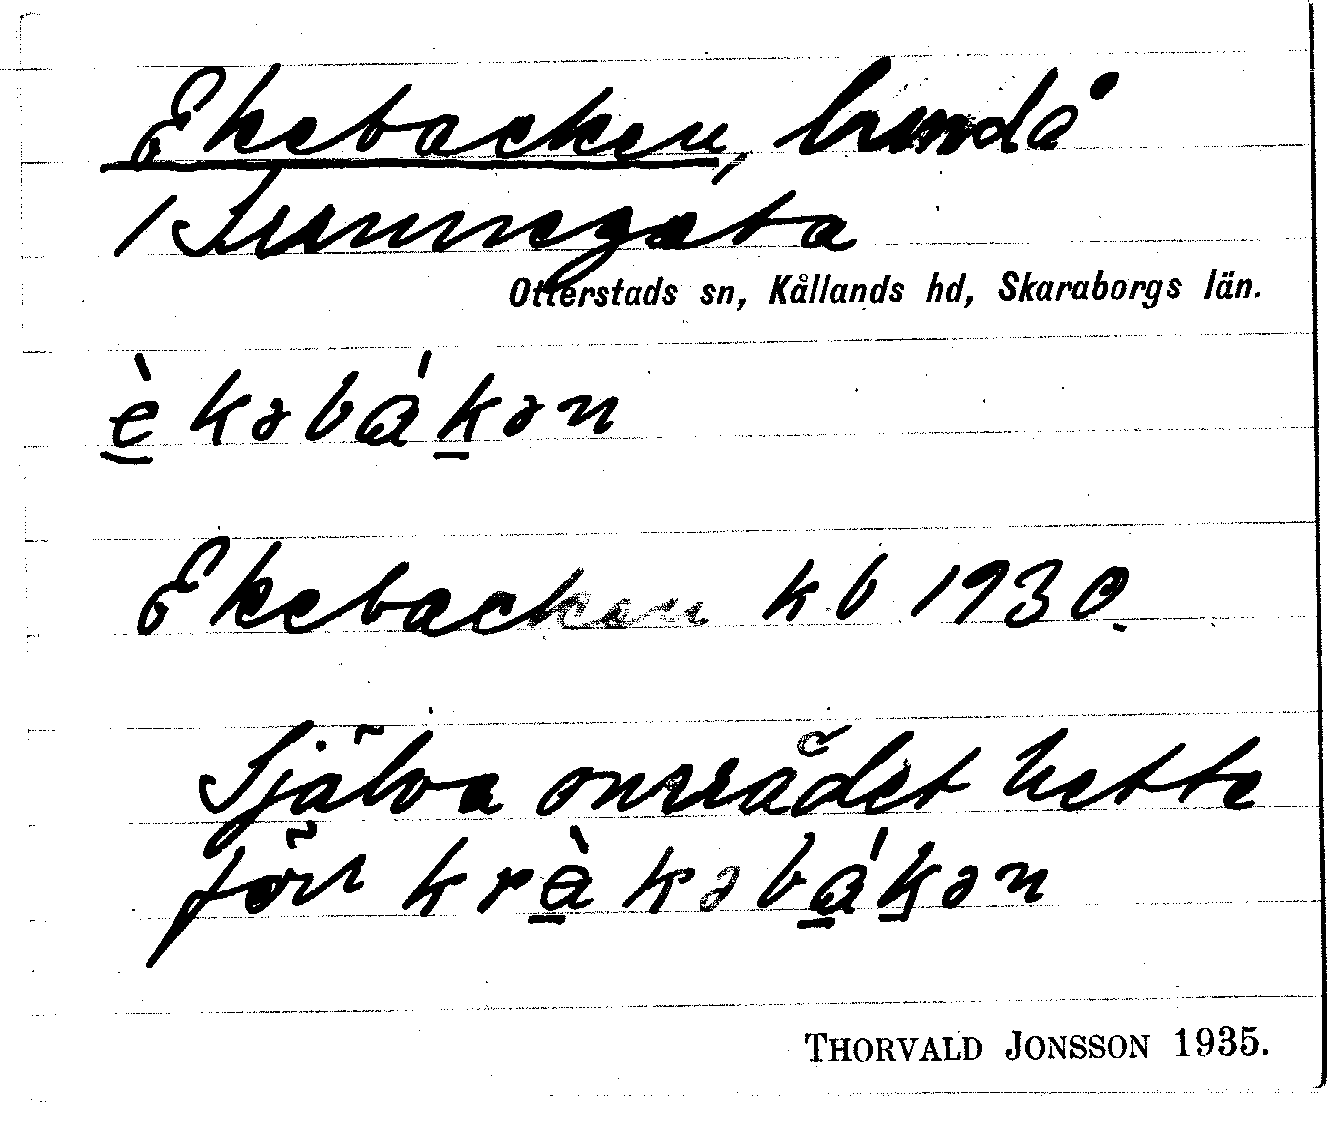 Ekebacken, bindå
/ Brunnegata
Otterstads sn, Kållands hd, Skaraborgs län.
èkəbákən
Ekebacken kb 1930.
Själva området hette
förr kràkəbákən
THORVALD JONSSON 1935.